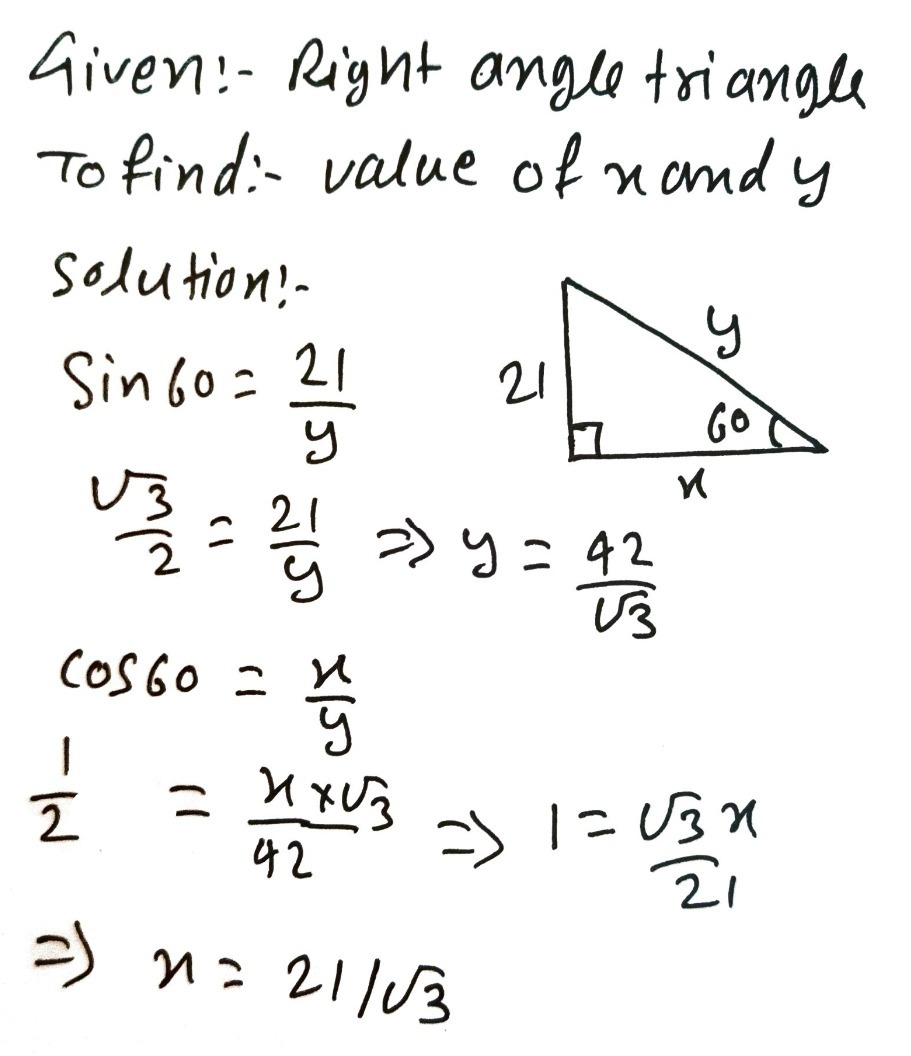 Given:- Right angle triangle
To find:- value of x and y
Solution:-
Sin 60 = 21/y
21
y
60
x
√3/2 = 21/y => y = 42/√3
cos 60 = x/y
1/2 = x×√3/42 => 1 = √3x/21
=> x = 21/√3